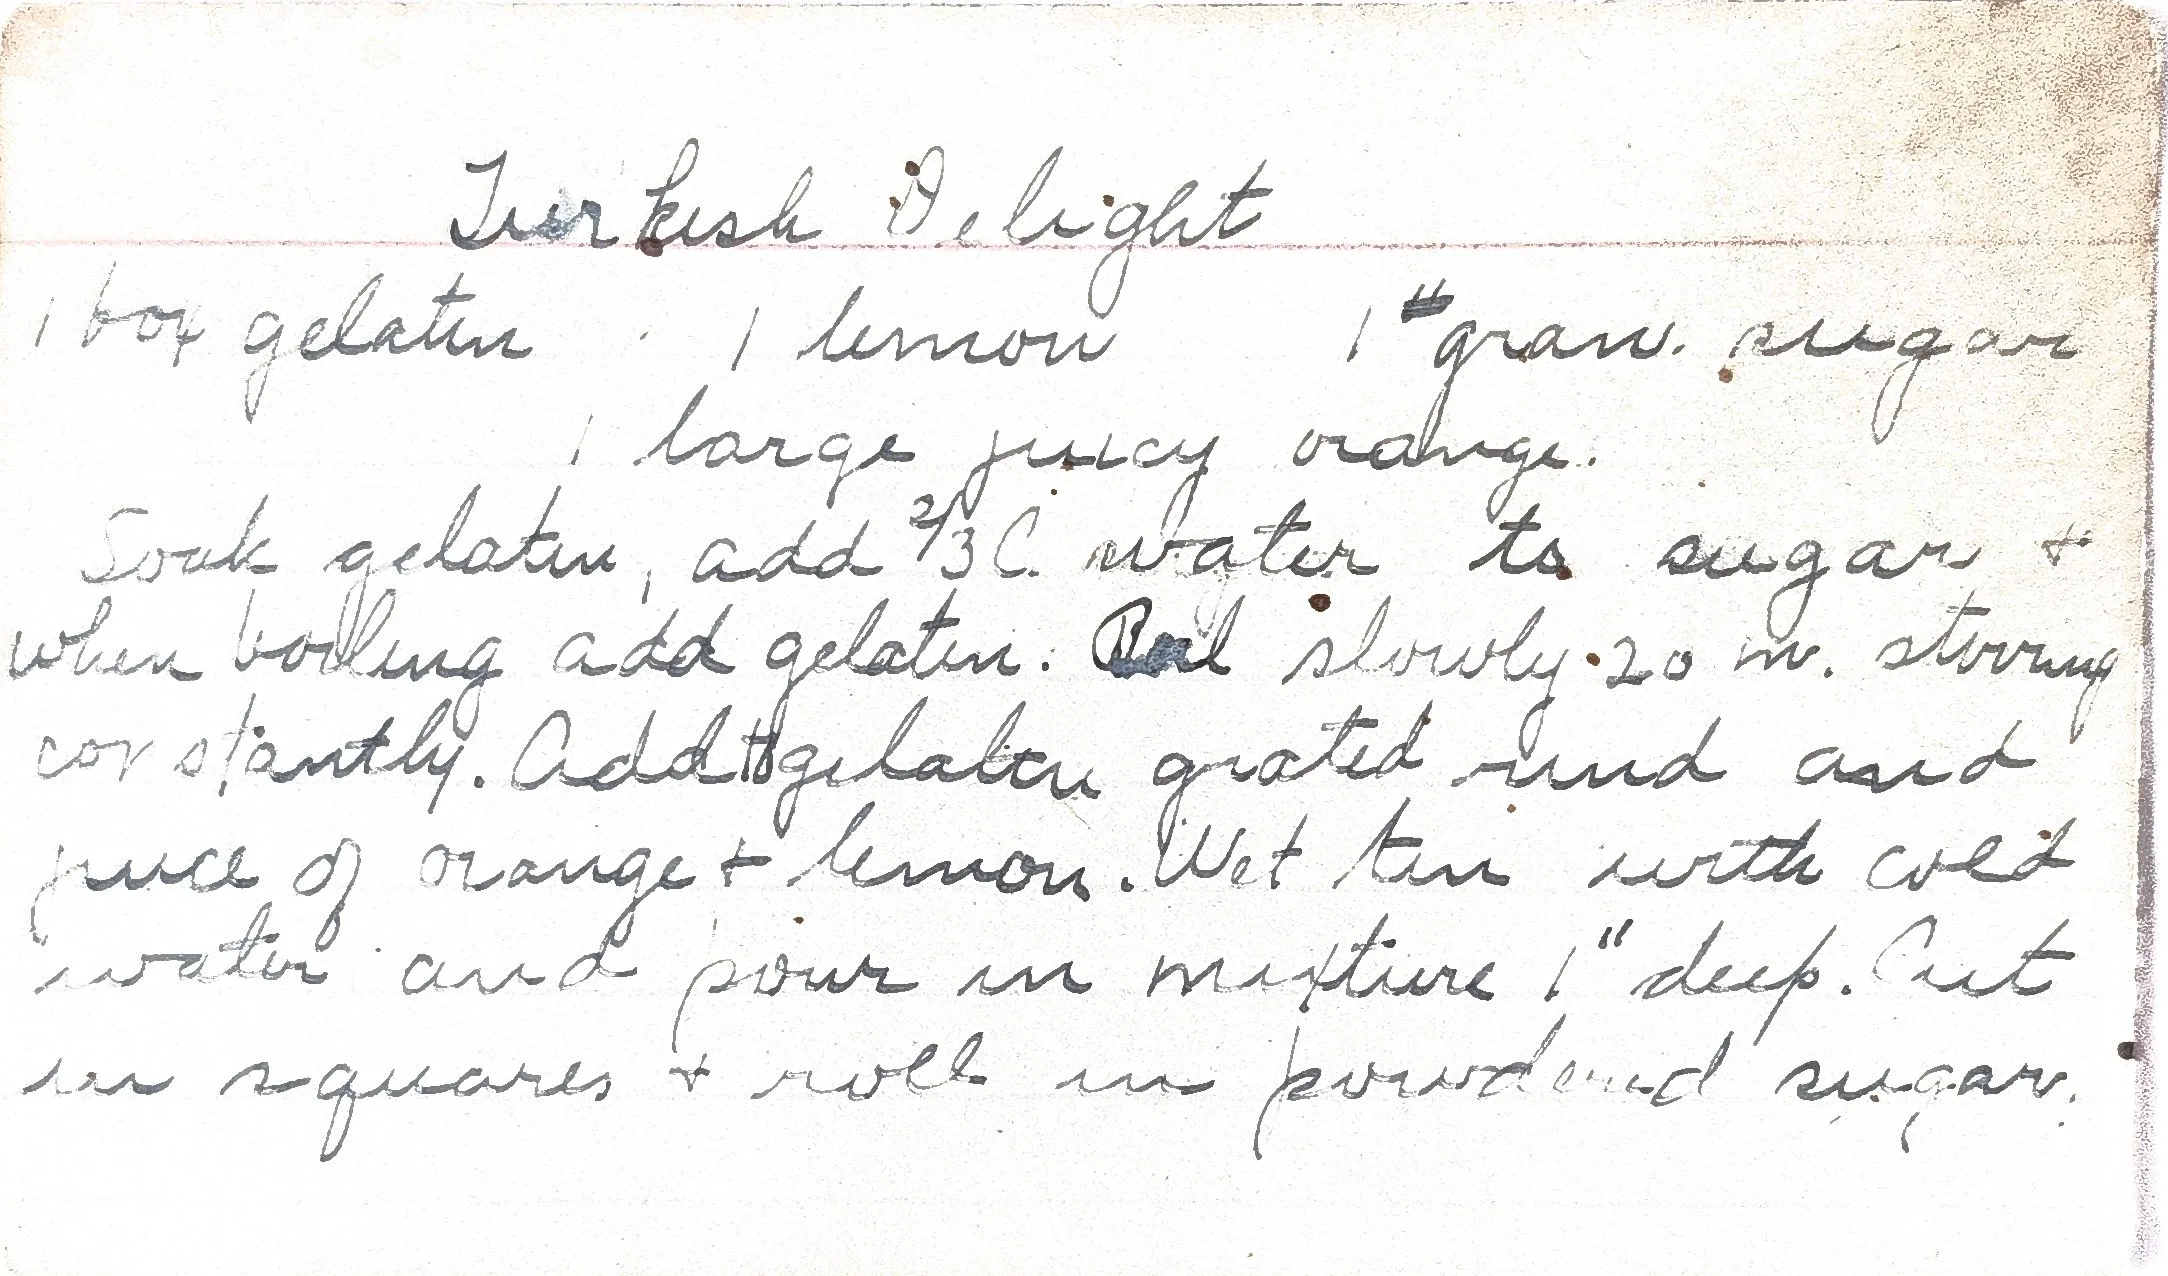 Turkish Delight
1 box gelatin 1 lemon 1 # gran. sugar
1 large juicy orange.
Soak gelatin, add 2/3 C. water to sugar +
when boiling add gelatin. Boil slowly 20 m. stirring
constantly. Add to gelatin grated rind and
juice of orange + lemon. Wet tin with cold
water and pour in mixture 1" deep. Cut
in squares + roll in powdered sugar.